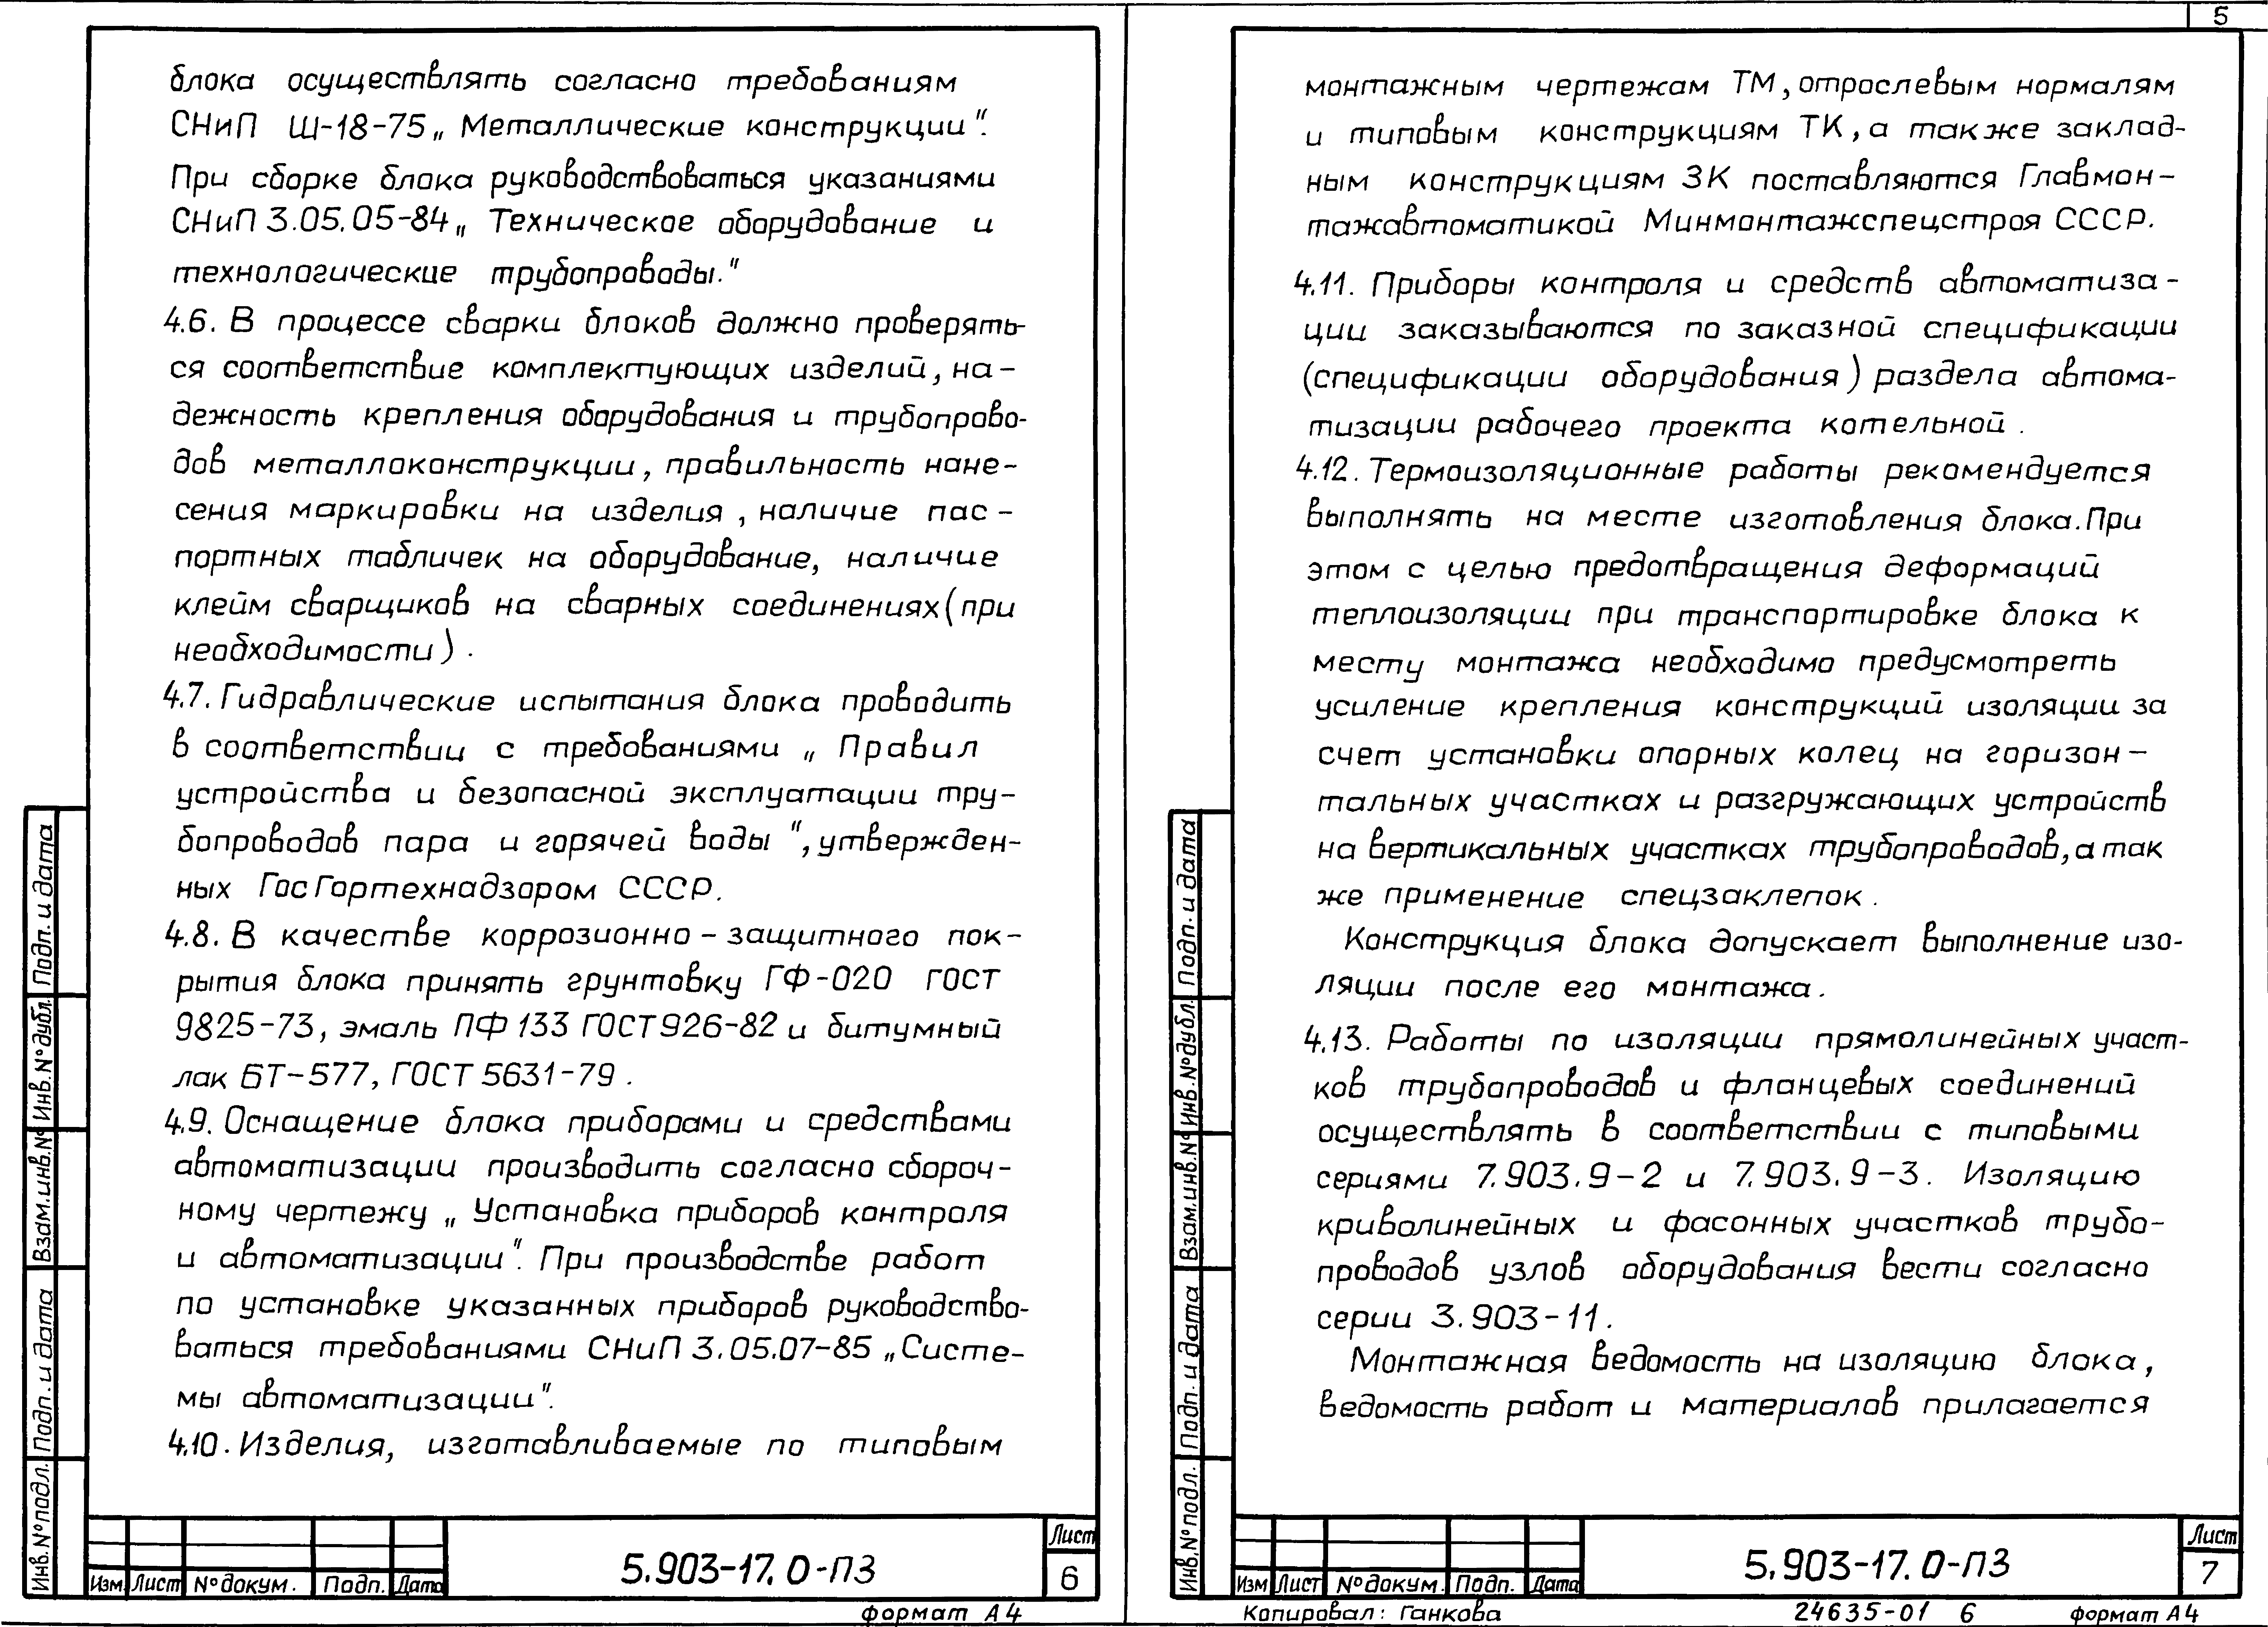 5
блока осуществлять согласно требованиям
СНиП Ш-18-75 „Металлические конструкции".
При сборке блока руководствоваться указаниями
СНиП 3.05.05-84 „Техническое оборудование и
технологические трубопроводы."
4.6. В процессе сварки блоков должно проверять-
ся соответствие комплектующих изделий, на-
дежность крепления оборудования и трубопрово-
дов металлоконструкции, правильность нане-
сения маркировки на изделия, наличие пас-
портных табличек на оборудование, наличие
клейм сварщиков на сварных соединениях (при
необходимости).
4.7. Гидравлические испытания блока проводить
в соответствии с требованиями „Правил
устройства и безопасной эксплуатации тру-
бопроводов пара и горячей воды", утвержден-
ных ГосГортехнадзором СССР.
4.8. В качестве коррозионно-защитного пок-
рытия блока принять грунтовку ГФ-020 ГОСТ
9825-73, эмаль ПФ 133 ГОСТ 926-82 и битумный
лак БТ-577, ГОСТ 5631-79.
4.9. Оснащение блока приборами и средствами
автоматизации производить согласно сбороч-
ному чертежу „Установка приборов контроля
и автоматизации". При производстве работ
по установке указанных приборов руководство-
ваться требованиями СНиП 3.05.07-85 „Систе-
мы автоматизации".
4.10. Изделия, изготавливаемые по типовым
Инв.№подл. Подп. и дата Взам.инв.№ Инв.№дубл. Подп. и дата
Изм Лист №докум. Подп. Дата
5.903-17.0-ПЗ
Лист
6
формат А4
монтажным чертежам ТМ, отрослевым нормалям
и типовым конструкциям ТК, а также заклад-
ным конструкциям ЗК поставляются Главмон-
тажавтоматикой Минмонтажспецстроя СССР.
4.11. Приборы контроля и средств автоматиза-
ции заказываются по заказной спецификации
(спецификации оборудования) раздела автома-
тизации рабочего проекта котельной.
4.12. Термоизоляционные работы рекомендуется
выполнять на месте изготовления блока. При
этом с целью предотвращения деформаций
теплоизоляции при транспортировке блока к
месту монтажа необходимо предусмотреть
усиление крепления конструкций изоляции за
счет установки опорных колец на горизон-
тальных участках и разгружающих устройств
на вертикальных участках трубопроводов, а так
же применение спецзаклепок.
Конструкция блока допускает выполнение изо-
ляции после его монтажа.
4.13. Работы по изоляции прямолинейных участ-
ков трубопроводов и фланцевых соединений
осуществлять в соответствии с типовыми
сериями 7.903.9-2 и 7.903.9-3. Изоляцию
криволинейных и фасонных участков трубо-
проводов узлов оборудования вести согласно
серии 3.903-11.
Монтажная ведомость на изоляцию блока,
ведомость работ и материалов прилагается
Инв.№подл. Подп. и дата Взам.инв.№ Инв.№дубл. Подп. и дата
Изм Лист №докум. Подп. Дата
5.903-17.0-ПЗ
Лист
7
Копировал: Ганкова 24635-01 6 формат А4